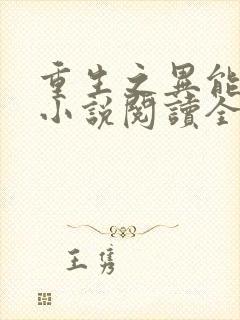 重生之異能
小說閱讀全
王雋